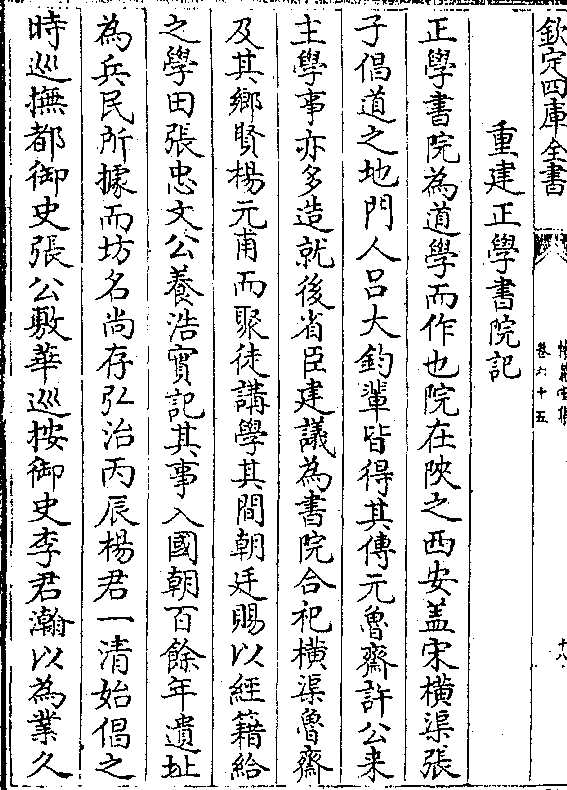 欽定四庫全書
卷六十五
十八
重建正學書院記
正學書院為道學而作也院在陜之西安盖宋橫渠張
子倡道之地門人吕大鈞輩皆得其傳元魯齋許公來
主學事亦多造就後省臣建議為書院合祀橫渠魯齋
及其鄉賢楊元甫而聚徒講學其間朝廷賜以經籍給
之學田張忠文公養浩實記其事入國朝百餘年遺址
為兵民所據而坊名尚存弘治丙辰楊君一清始倡之
時巡撫都御史張公敷華巡按御史李君瀚以為業久